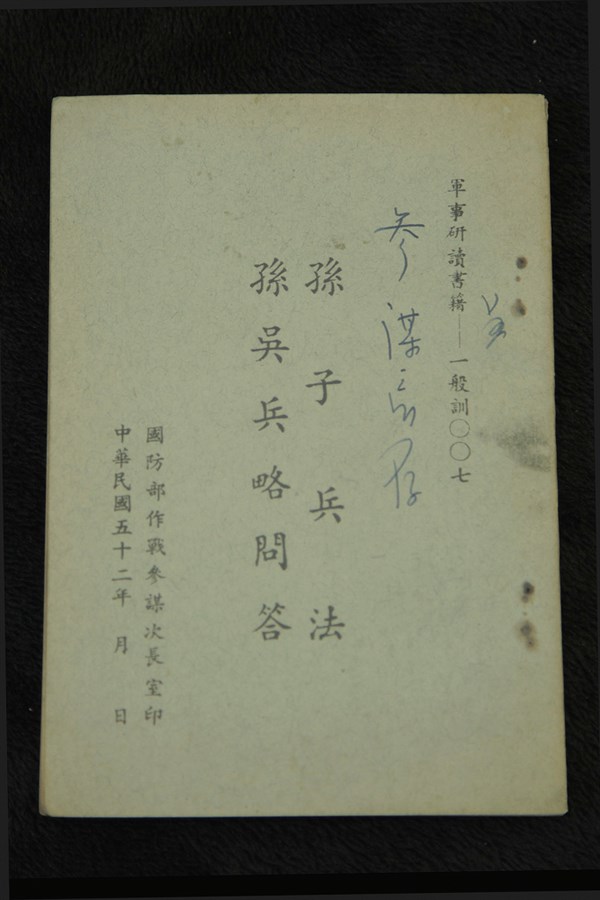 軍事研讀書籍——一般訓〇〇七
參謀
孫子兵法
孫吳兵略問答
國防部作戰參謀次長室印
中華民國五十二年 月 日